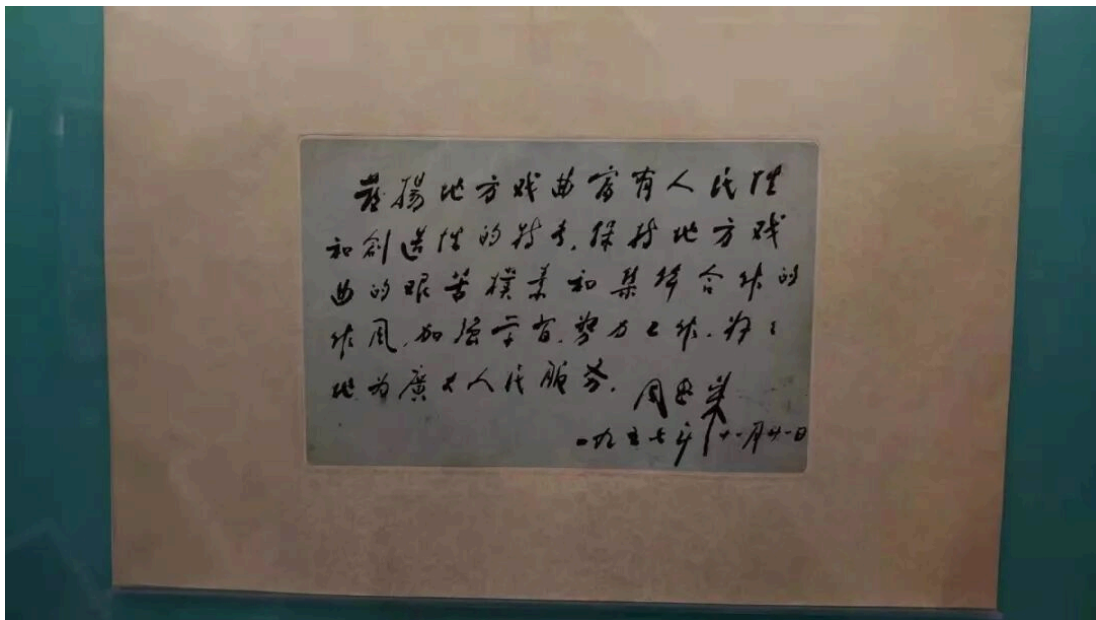 發揚地方戏曲富有人民性
和创造性的特长,保持地方戏
曲的艰苦樸素和集体合作的
作风,加强学习,努力工作,好々
地为廣大人民服务.
周恩来
一九五七年十一月廿一日